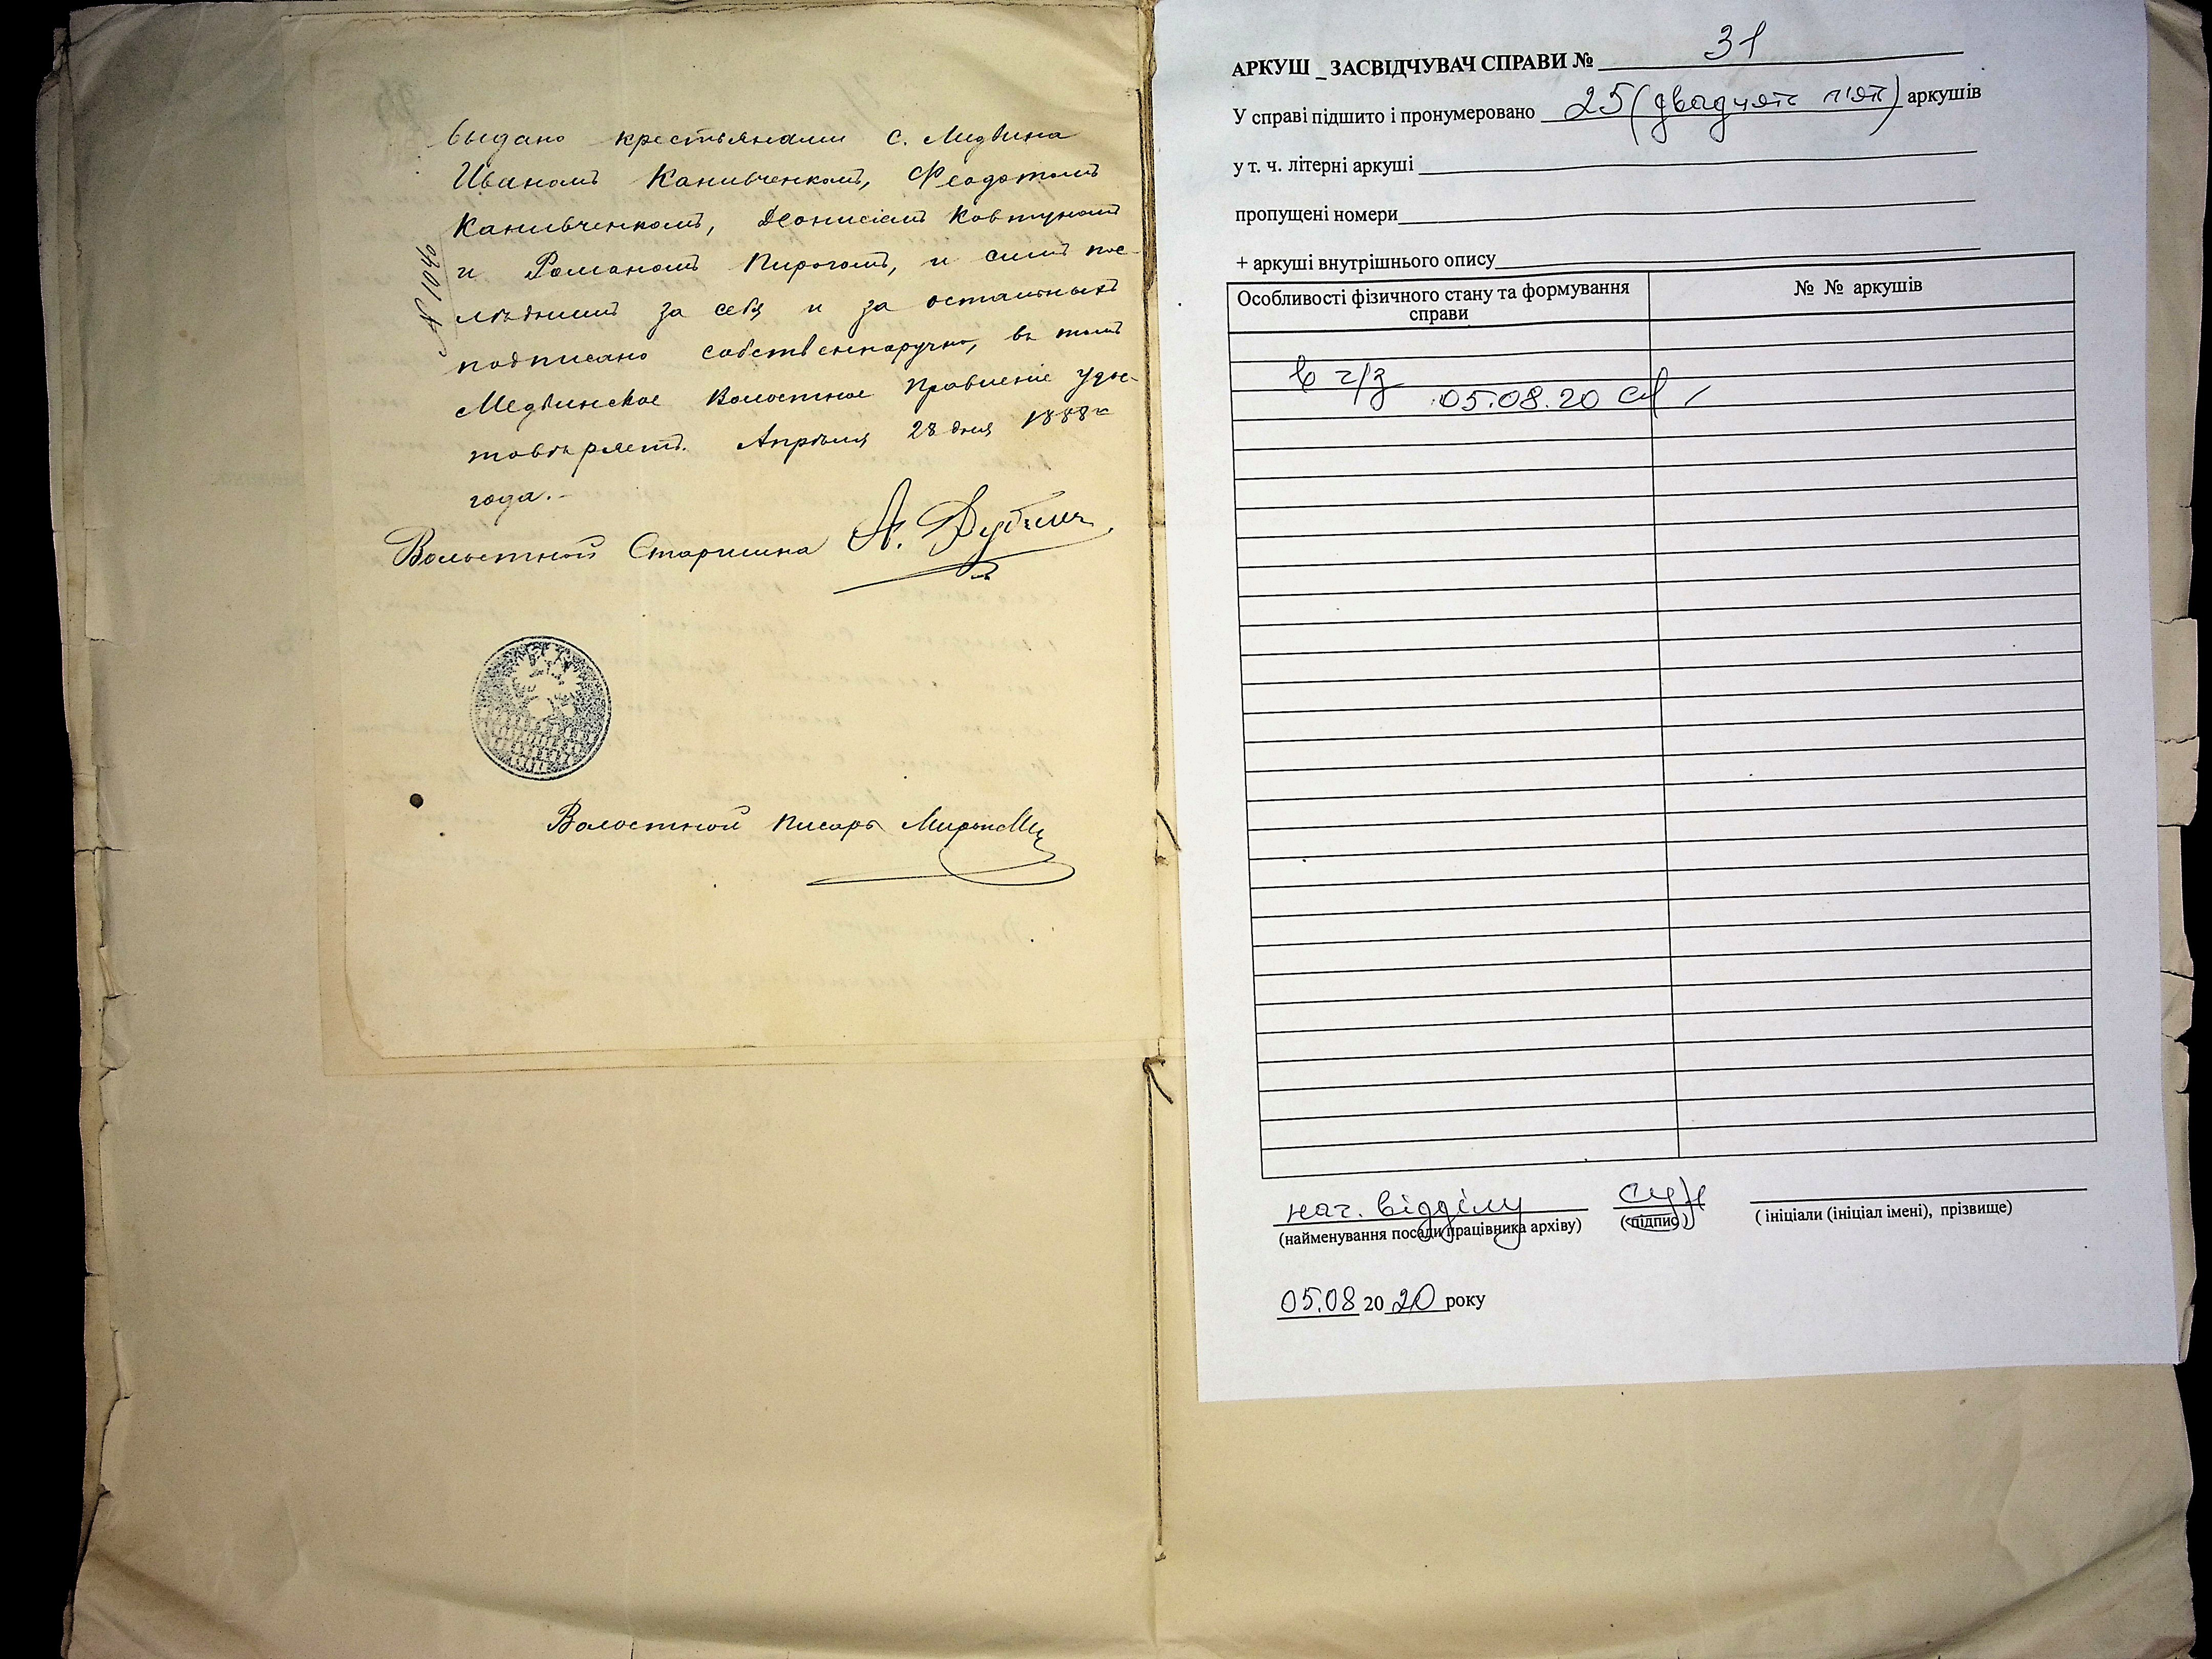 выдано крестьянами с. Медвина
Иваномъ Канивченкомъ, Феодотомъ
Канивченкомъ, Деонисіемъ Ковтуномъ
и Романомъ Пирогомъ, и симъ пос-
лѣднимъ за себя и за остальныхъ
подписано собственноручно, въ томъ
Медвинское Волостное Правленіе удос-
товѣряетъ. Апрѣля 28 дня 1888 го
года.-
№ 1046
Волостной Старшина А.
Волостной Писарь
АРКУШ _ ЗАСВІДЧУВАЧ СПРАВИ № 31
У справі підшито і пронумеровано 25 (двадцять п'ять) аркушів
у т. ч. літерні аркуші
пропущені номери
+ аркуші внутрішнього опису
Особливості фізичного стану та формування
справи
№ № аркушів
в ч/з
05.08.20
нач. відділу
(найменування посади працівника архіву)
(підпис)
( ініціали (ініціал імені), прізвище)
05.08 2020 року